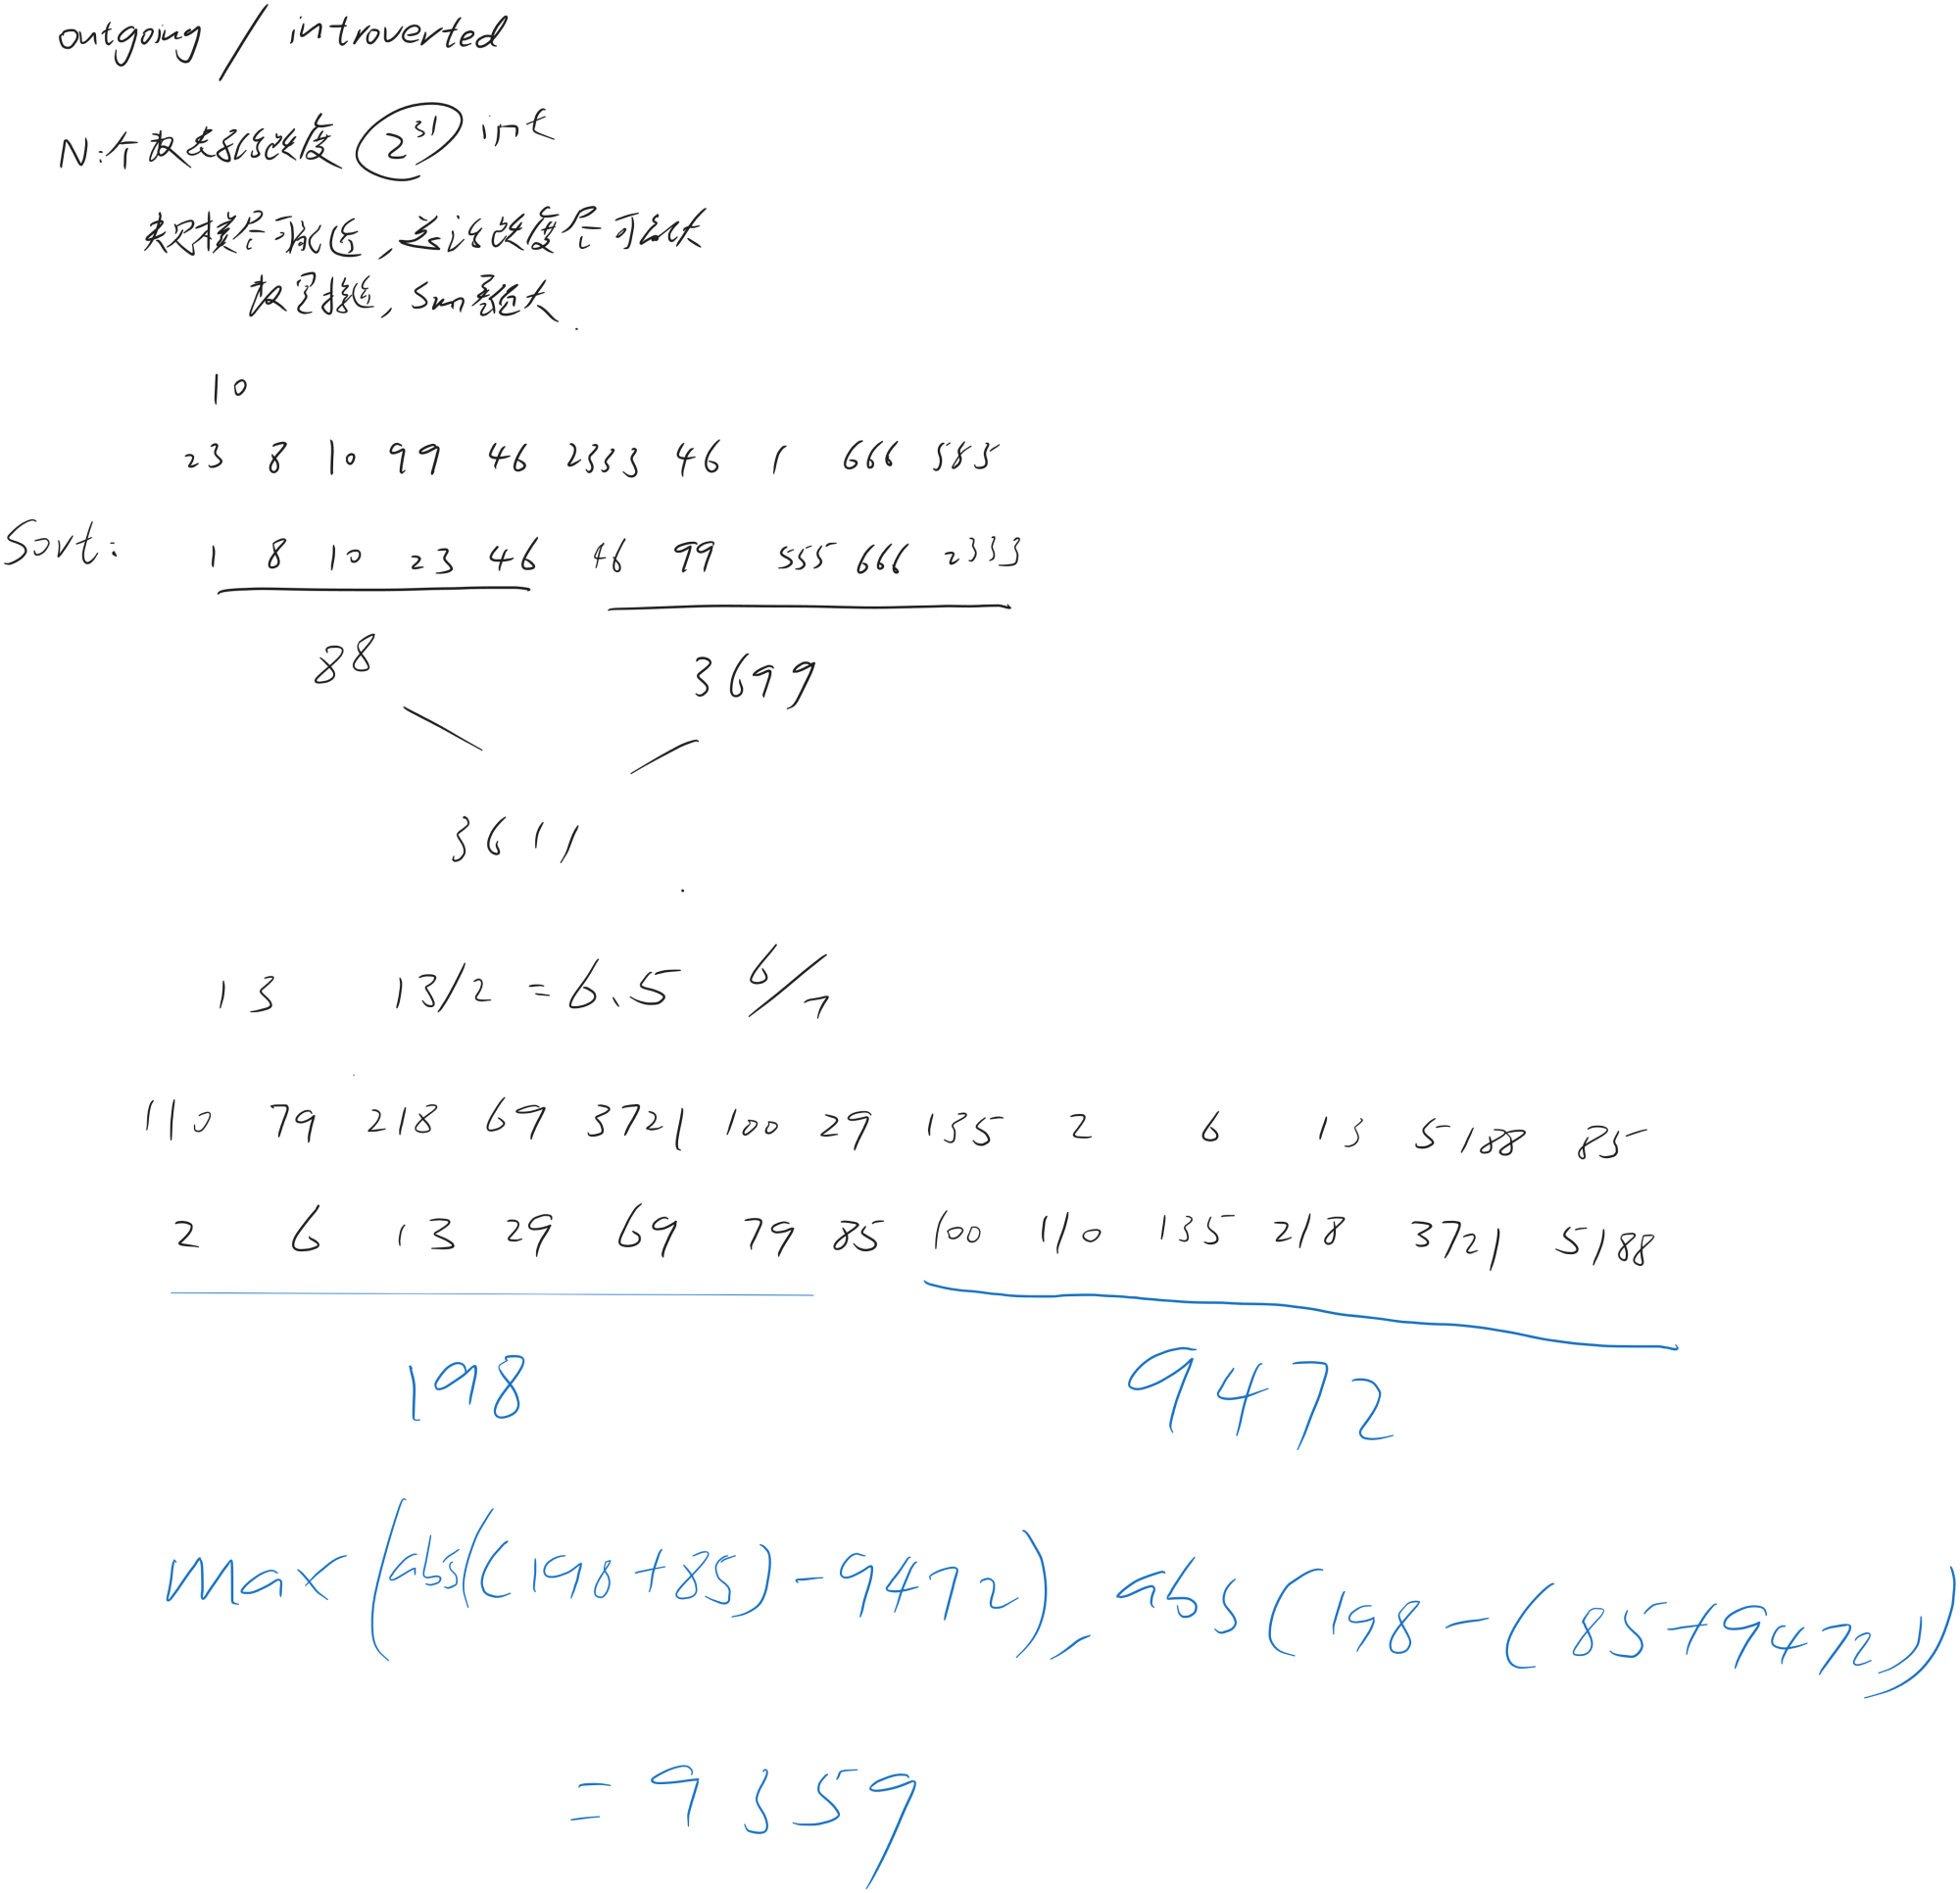 outgoing / introverted
N:个数之和不超过 2^31 int
10
23 8 10 99 46 2333 46 1 666 555
Sort: 1 8 10 23 46 46 99 555 666 2333
88 3699
3611
13 13/2 = 6.5 6/7
110 79 218 69 3721 100 29 135 2 6 13 5188 85
2 6 13 29 69 79 85 100 110 135 218 3721 5188
198 9472
Max(abs((198+85)-9472), abs(198-(85+9472))
= 9359